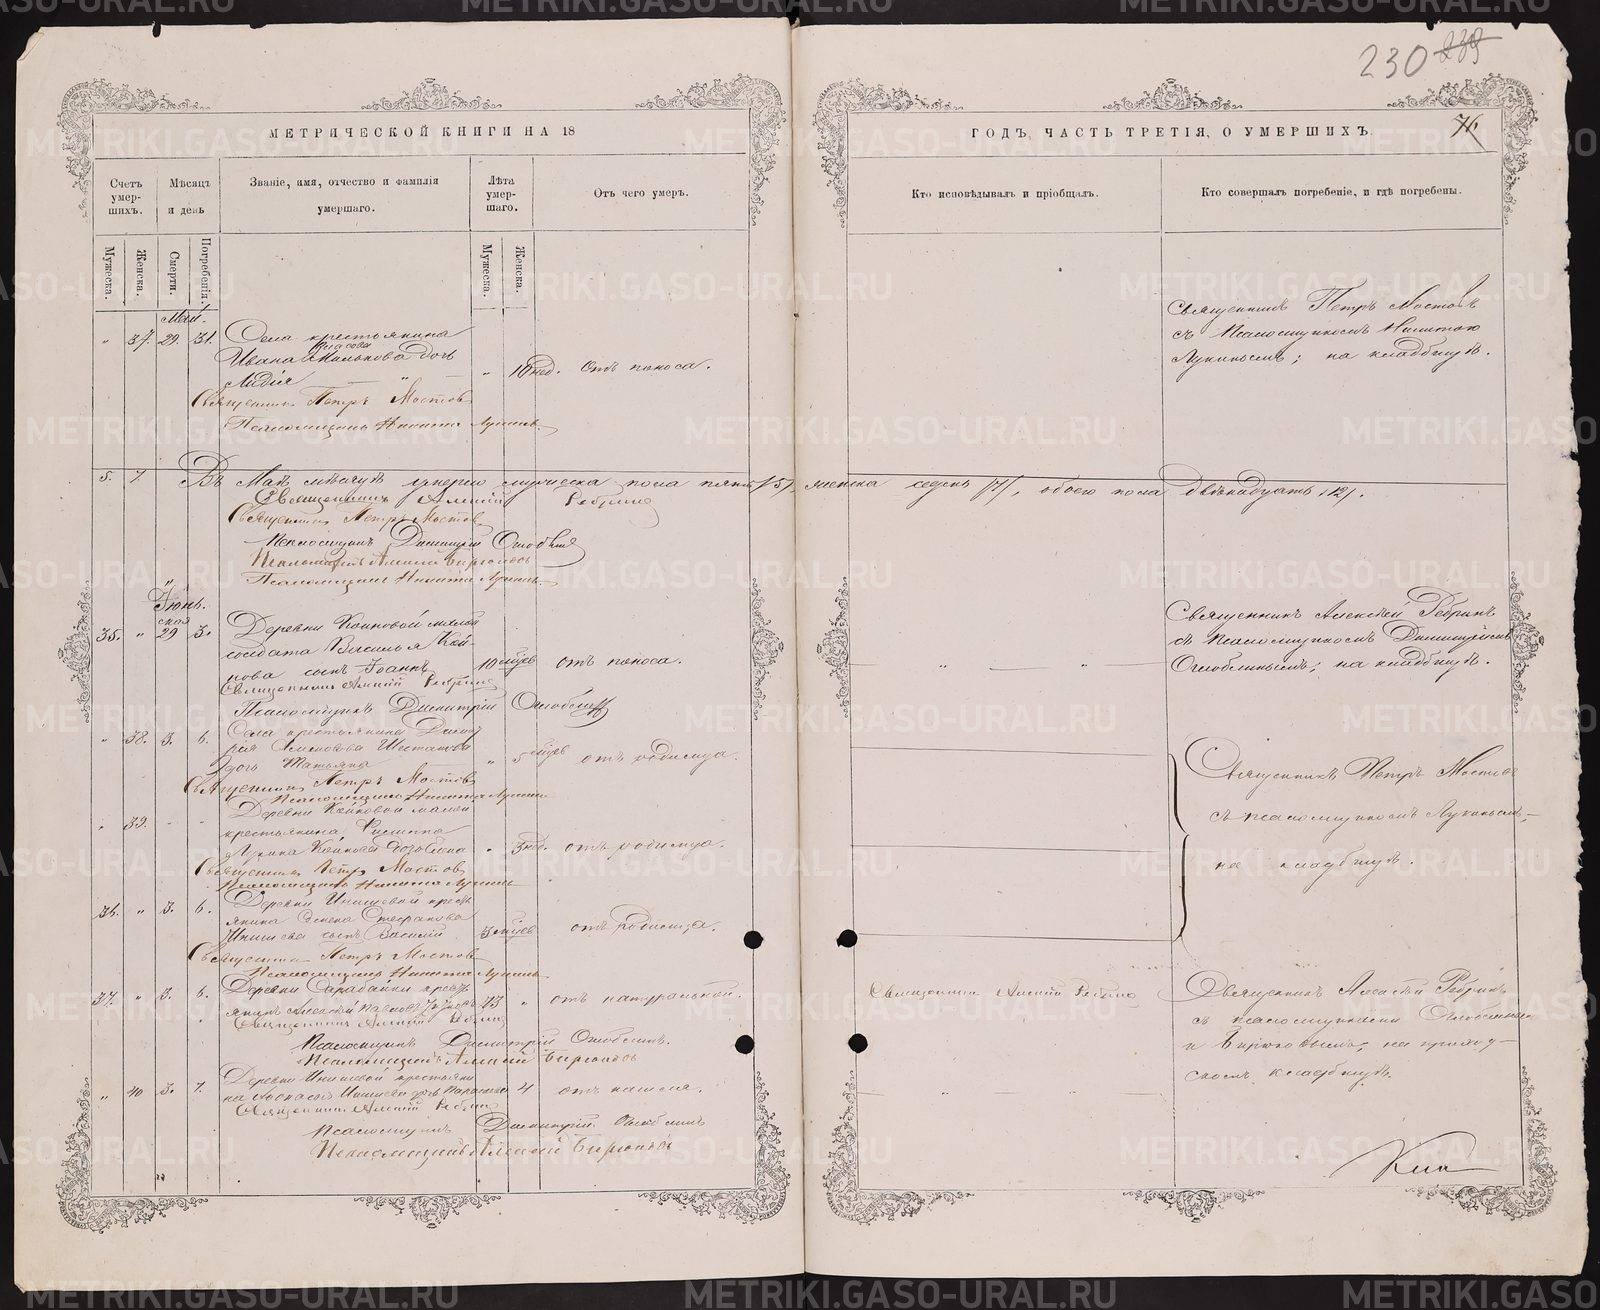 230 239
МЕТРИЧЕСКОЙ КНИГИ НА 18
ГОДЪ, ЧАСТЬ ТРЕТІЯ, О УМЕРШИХЪ.
76
Счетъ умер-шихъ.
Мѣсяцъ и день
Званіе, имя, отчество и фамилія умершаго.
Лѣта умер-шаго.
Отъ чего умеръ.
Кто исповѣдывалъ и пріобщалъ.
Кто совершалъ погребеніе, и гдѣ погребены.
Мужеска.
Женска.
Смерти.
Погребенія.
Мужеска.
Женска.
Май.
" 37. 29. 31. Села крестьянина
Ивана Власова Милькова дочь
Лидія " 10 нед. Отъ поноса.
Священникъ Петръ Мостовъ
съ Псаломщикомъ Никитою
Лукинымъ; на кладбищѣ.
Священникъ Петръ Мостовъ
Псаломщикъ Никита Лукинъ
5. 7. Въ Маѣ мѣсяцѣ умерло мужеска пола пять /5/, женска седмь /7/, обоего пола двѣнадцать /12/.
Священникъ Алексій Ребринъ
Священникъ Петръ Мостовъ
Псаломщикъ Димитрій Оглоблинъ
Псаломщикъ Алексій Бирюковъ
Псаломщикъ Никита Лукинъ
Іюнь.
35. " 29 3. Деревни
солдата Василья
сынъ Іоаннъ 10 мѣсѧцевъ отъ поноса.
Священникъ Алексѣй Ребринъ
съ Псаломщикомъ Димитріемъ
Оглоблинымъ; на кладбищѣ.
Священникъ Алексій Ребринъ
Псаломщикъ Димитрій Оглоблинъ
" 38. 3. 6. Села крестьянина Димит-
рія Шестакова
дочь Татьяна " 5 отъ родимца.
Священникъ Петръ Мостовъ
Псаломщикъ Никита Лукинъ
" 39. Деревни
крестьянина
" 3 нед. отъ родимца.
Священникъ Петръ Мостовъ
съ псаломщикомъ Лукинымъ,
на кладбищѣ.
Священникъ Петръ Мостовъ
Псаломщикъ Никита Лукинъ
36. " 3. 6. Деревни Инишевой кресть-
янина Стефанова
Инишева сынъ Василій отъ родимца.
Священникъ Петръ Мостовъ
Псаломщикъ Никита Лукинъ
37. " 3. 6. Деревни кресть-
янинъ Алексѣй Павловъ 73 " отъ натуральной.
Священникъ Алексій Ребринъ
Священникъ Алексѣй Ребринъ
съ псаломщиками Оглоблинымъ
и Бирюковымъ, на приход-
скомъ кладбищѣ.
Священникъ Алексій Ребринъ
Псаломщикъ Димитрій Оглоблинъ.
Псаломщикъ Алексій Бирюковъ
" 40 3. 7. Деревни Инишевой крестьяни-
на Инишева дочь 4 отъ кашля.
Священникъ Алексій Ребринъ
Псаломщикъ Димитрій Оглоблинъ
Псаломщикъ Алексій Бирюковъ
METRIKI.GASO-URAL.RU